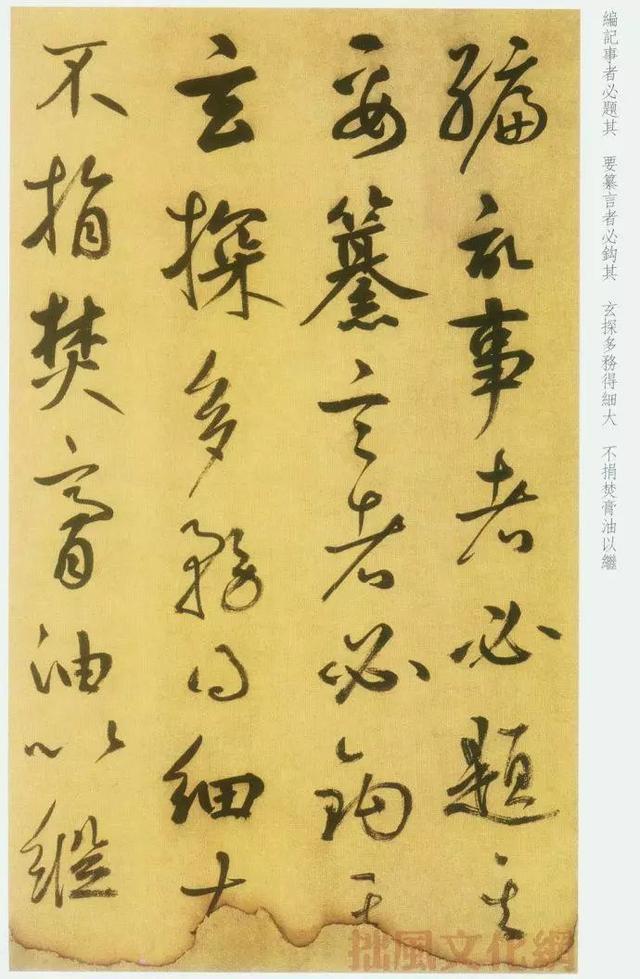 編記事者必題其　要纂言者必鈎其　玄探多務得細大　不捐焚膏油以繼
編記事者必題其
要纂言者必鈎其
玄探多務得細大
不捐焚膏油以繼
拙風文化網